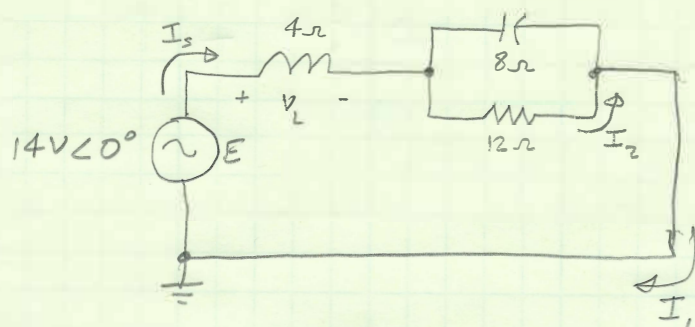 I_s
4Ω
8Ω
+ V_L -
12Ω
I_2
14V∠0°
E
I_1